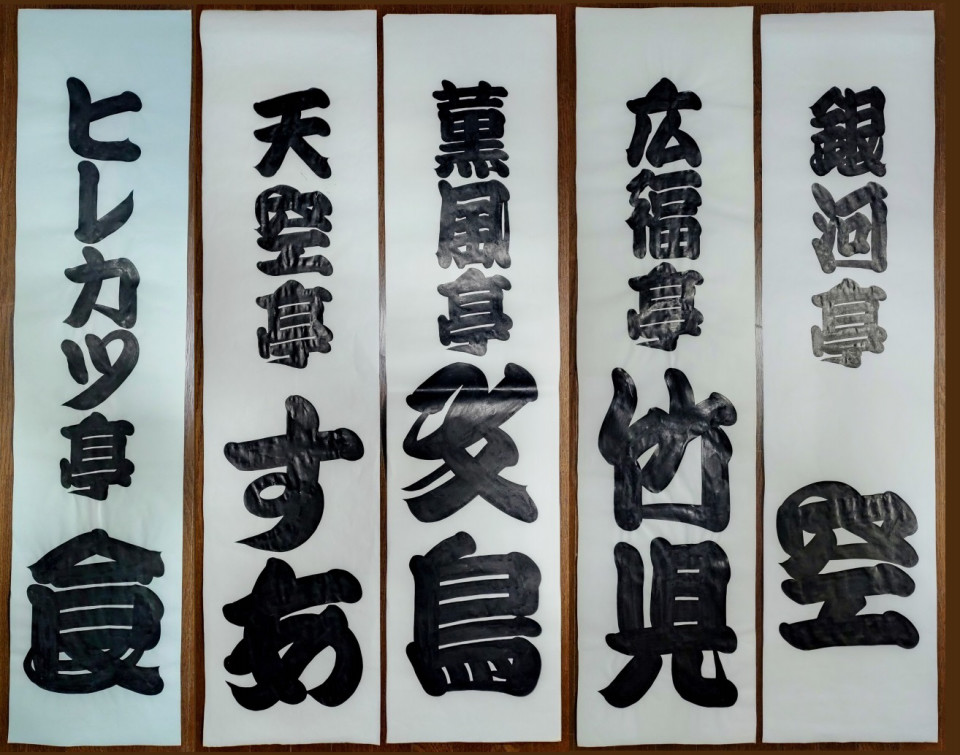 銀河亭 空
広福亭 竹児
薫風亭 父鳥
天空亭 すあ
ヒレカツ亭 食